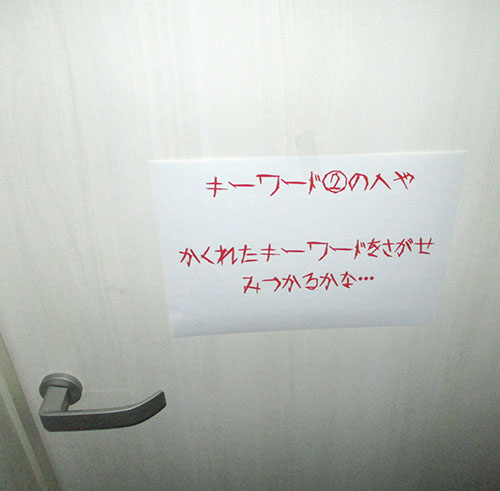 キーワード②のへや
かくれたキーワードをさがせ
みつかるかな…